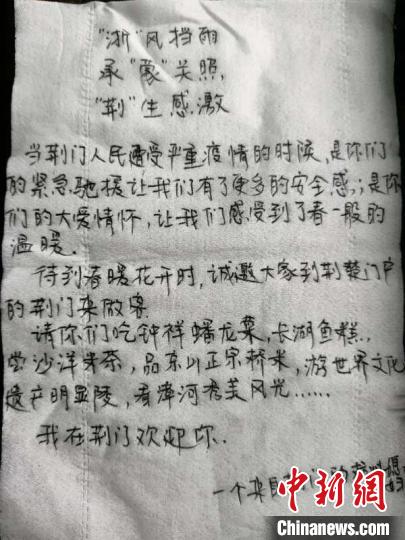 "浙"风挡雨
承"蒙"关照,
"荆"生感激
当荆门人民遭受严重疫情的时候,是你们
的紧急驰援让我们有了更多的安全感,;是你
们的大爱情怀,让我们感受到了春一般的
温暖.
待到春暖花开时,诚邀大家到荆楚门户
的荆门来做客
请你们吃钟祥蟠龙菜,长湖鱼糕.,
尝沙洋米茶,品京山正宗桥米,游世界文化
遗产明显陵,看漳河秀美风光……
我在荆门欢迎你.
一个来自
中新网
Chinanews.com